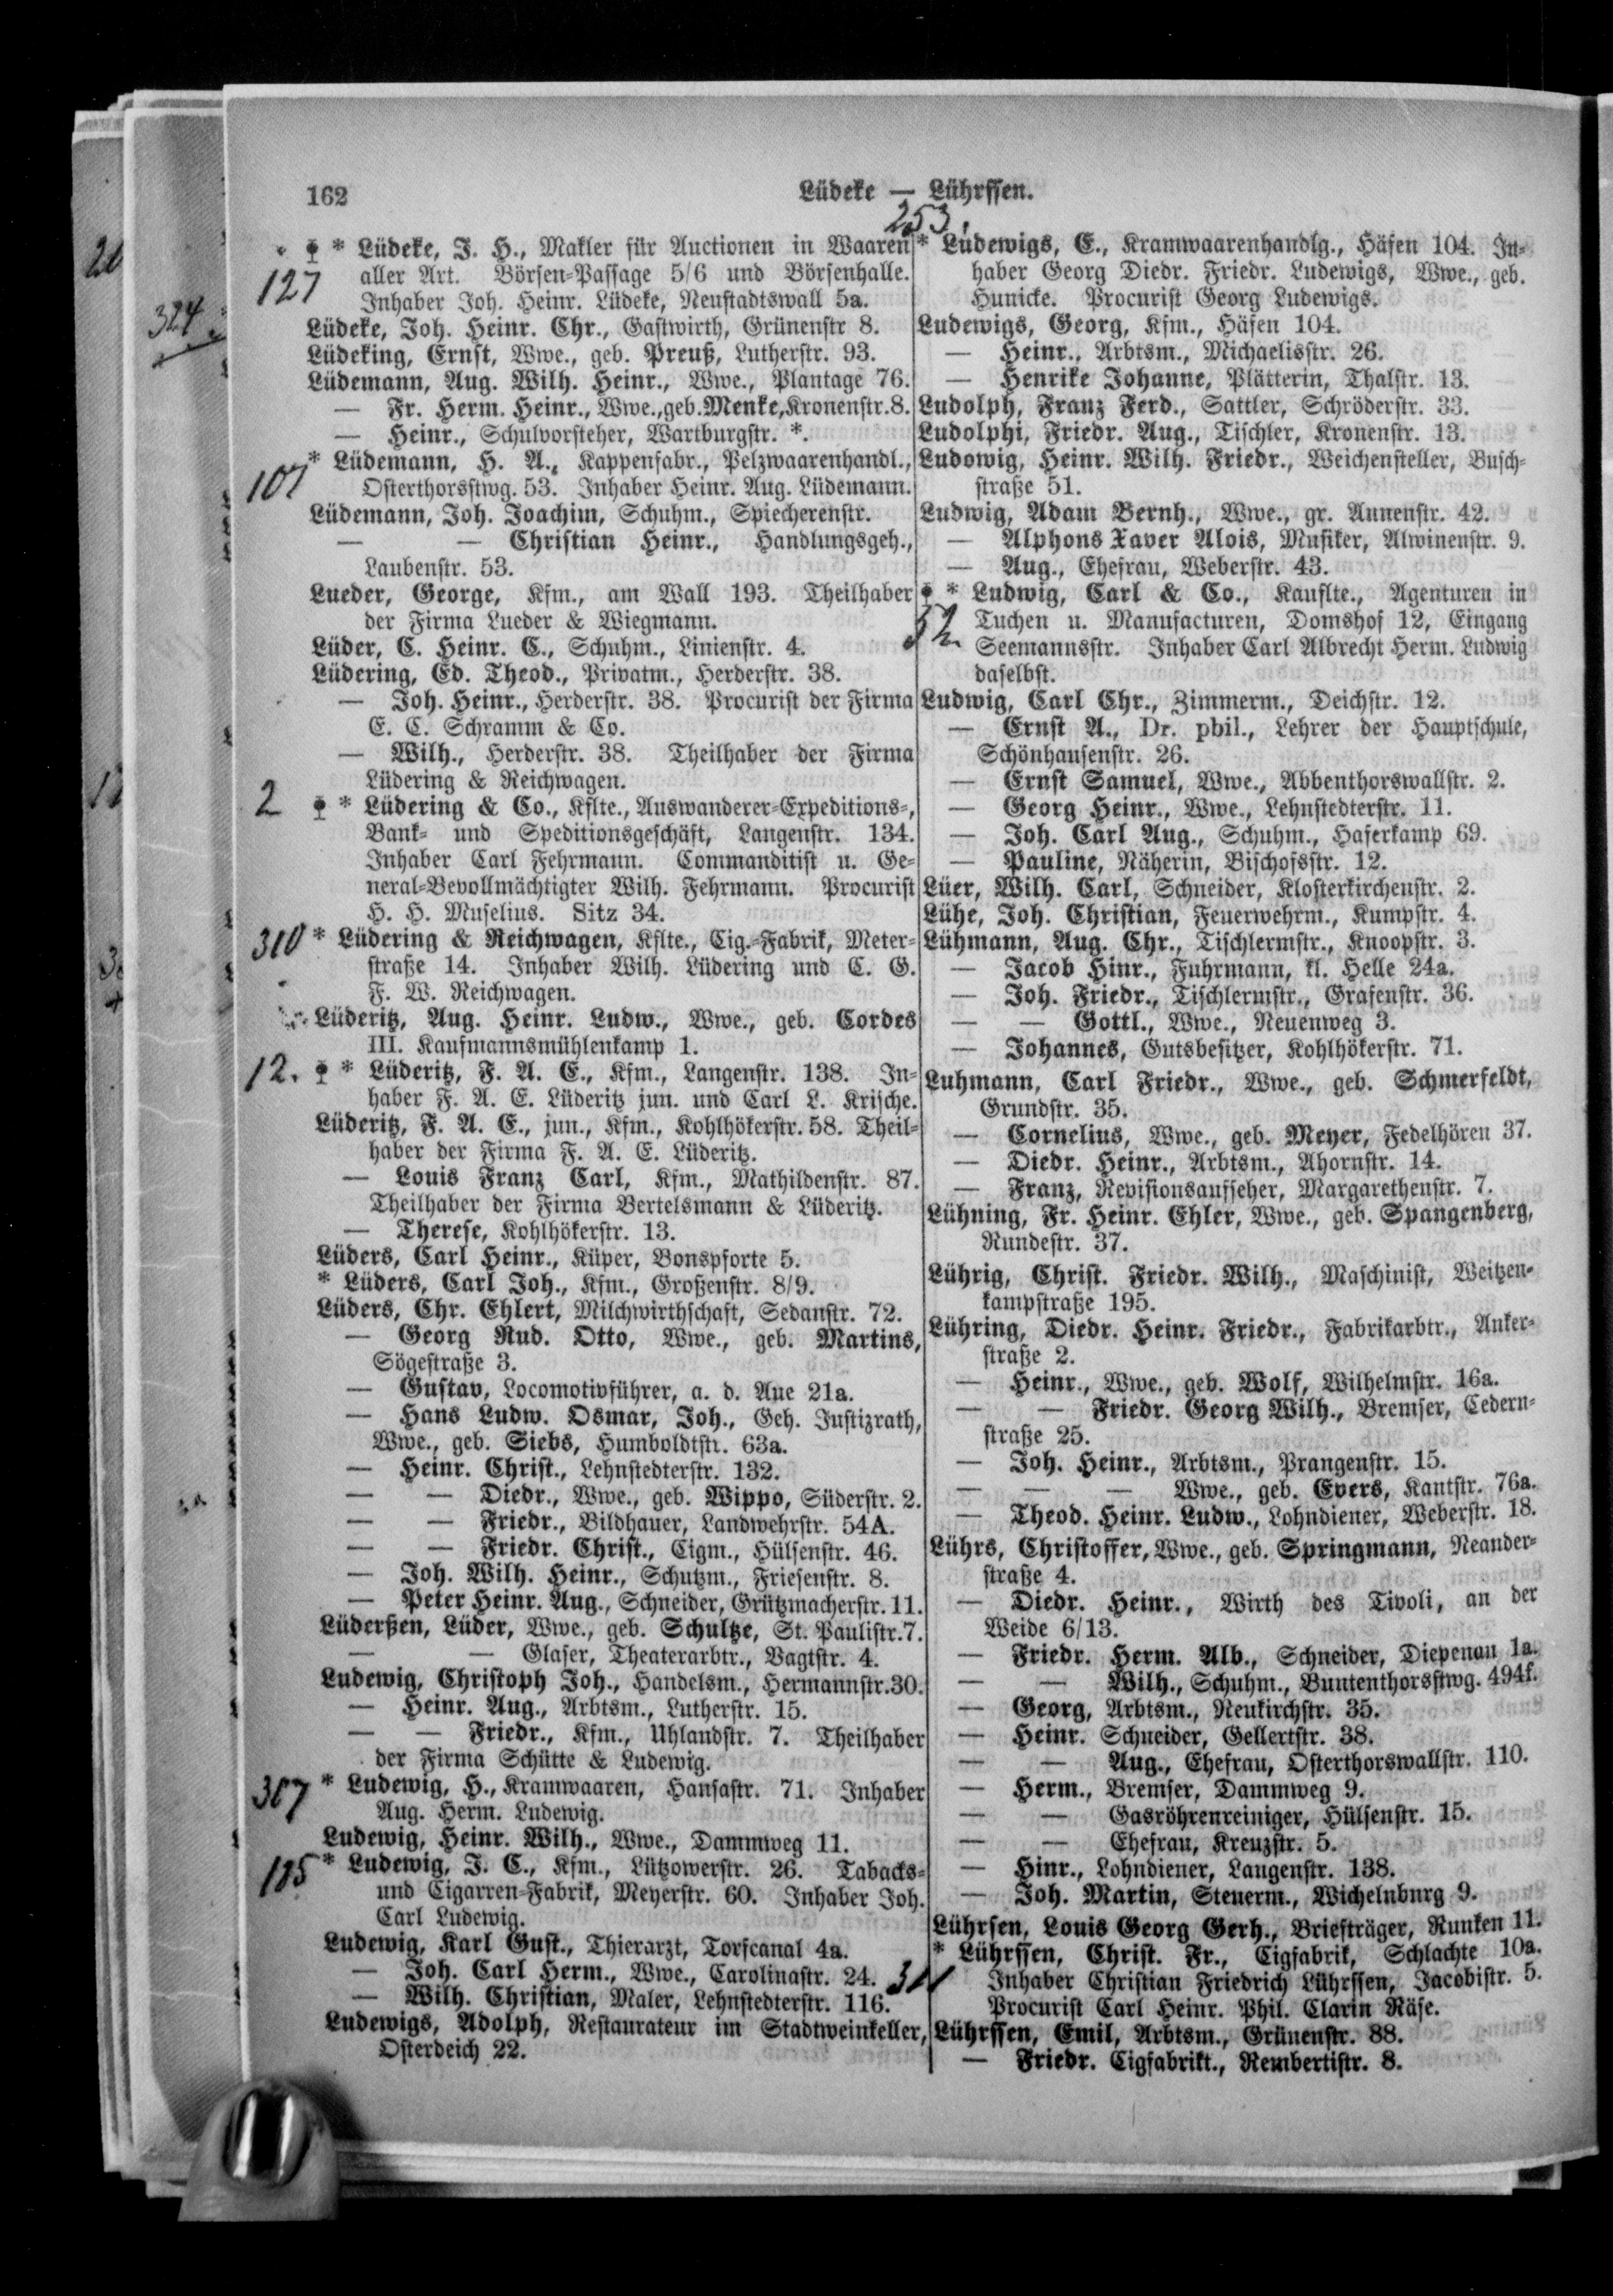 162
Lüdeke — Lührssen.
253
* Lüdeke, J. H., Makler für Auctionen in Waaren
127
aller Art. Börsen-Passage 5/6 und Börsenhalle.
Inhaber Joh. Heinr. Lüdeke, Neustadtswall 5a.
Lüdeke, Joh. Heinr. Chr., Gastwirth, Grünenstr 8.
Lüdeking, Ernst, Wwe., geb. Preuß, Lutherstr. 93.
Lüdemann, Aug. Wilh. Heinr., Wwe., Plantage 76.
— Fr. Herm. Heinr., Wwe., geb. Menke, Kronenstr. 8.
— Heinr., Schulvorsteher, Wartburgstr. *.
* Lüdemann, H. A., Kappenfabr., Pelzwaarenhandl.,
107
Osterthorsstwg. 53. Inhaber Heinr. Aug. Lüdemann.
Lüdemann, Joh. Joachim, Schuhm., Spiecherenstr.
— — Christian Heinr., Handlungsgeh.,
Laubenstr. 53.
Lueder, George, Kfm., am Wall 193. Theilhaber
der Firma Lueder & Wiegmann.
Lüder, C. Heinr. C., Schuhm., Linienstr. 4.
Lüdering, Ed. Theod., Privatm., Herderstr. 38.
— Joh. Heinr., Herderstr. 38. Procurist der Firma
E. C. Schramm & Co.
— Wilh., Herderstr. 38. Theilhaber der Firma
Lüdering & Reichwagen.
2 * Lüdering & Co., Kflte., Auswanderer-Expeditions-,
Bank- und Speditionsgeschäft, Langenstr. 134.
Inhaber Carl Fehrmann. Commanditist u. Ge-
neral-Bevollmächtigter Wilh. Fehrmann. Procurist
H. H. Muselius. Sitz 34.
310 * Lüdering & Reichwagen, Kflte., Cig.-Fabrik, Meter-
straße 14. Inhaber Wilh. Lüdering und C. G.
F. W. Reichwagen.
Lüderitz, Aug. Heinr. Ludw., Wwe., geb. Cordes
III. Kaufmannsmühlenkamp 1.
12. * Lüderitz, F. A. E., Kfm., Langenstr. 138. In-
haber F. A. E. Lüderitz jun. und Carl L. Krische.
Lüderitz, F. A. E., jun., Kfm., Kohlhökerstr. 58. Theil-
haber der Firma F. A. E. Lüderitz.
— Louis Franz Carl, Kfm., Mathildenstr. 87.
Theilhaber der Firma Bertelsmann & Lüderitz.
— Therese, Kohlhökerstr. 13.
Lüders, Carl Heinr., Küper, Bonspforte 5.
* Lüders, Carl Joh., Kfm., Großenstr. 8/9.
Lüders, Chr. Ehlert, Milchwirthschaft, Sedanstr. 72.
— Georg Rud. Otto, Wwe., geb. Martins,
Sögestraße 3.
— Gustav, Locomotivführer, a. d. Aue 21a.
— Hans Ludw. Osmar, Joh., Geh. Justizrath,
Wwe., geb. Siebs, Humboldtstr. 63a.
— Heinr. Christ., Lehnstedterstr. 132.
— — Diedr., Wwe., geb. Wippo, Süderstr. 2.
— — Friedr., Bildhauer, Landwehrstr. 54A.
— — Friedr. Christ., Cigm., Hülsenstr. 46.
— Joh. Wilh. Heinr., Schutzm., Friesenstr. 8.
— Peter Heinr. Aug., Schneider, Grützmacherstr. 11.
Lüderßen, Lüder, Wwe., geb. Schultze, St. Paulistr. 7.
— — Glaser, Theaterarbtr., Vagtstr. 4.
Ludewig, Christoph Joh., Handelsm., Hermannstr. 30.
— Heinr. Aug., Arbtsm., Lutherstr. 15.
— — Friedr., Kfm., Uhlandstr. 7. Theilhaber
der Firma Schütte & Ludewig.
307 * Ludewig, H., Kramwaaren, Hansastr. 71. Inhaber
Aug. Herm. Ludewig.
Ludewig, Heinr. Wilh., Wwe., Dammweg 11.
* Ludewig, J. C., Kfm., Lützowerstr. 26. Tabacks-
und Cigarren-Fabrik, Meyerstr. 60. Inhaber Joh.
Carl Ludewig.
Ludewig, Karl Gust., Thierarzt, Torfcanal 4a.
— Joh. Carl Herm., Wwe., Carolinastr. 24.
— Wilh. Christian, Maler, Lehnstedterstr. 116.
Ludewigs, Adolph, Restaurateur im Stadtweinkeller,
Osterdeich 22.
* Ludewigs, E., Kramwaarenhandlg., Häfen 104. In-
haber Georg Diedr. Friedr. Ludewigs, Wwe., geb.
Hunicke. Procurist Georg Ludewigs.
Ludewigs, Georg, Kfm., Häfen 104.
— Heinr., Arbtsm., Michaelisstr. 26.
— Henrike Johanne, Plätterin, Thalstr. 13.
Ludolph, Franz Ferd., Sattler, Schröderstr. 33.
Ludolphi, Friedr. Aug., Tischler, Kronenstr. 13.
Ludowig, Heinr. Wilh. Friedr., Weichensteller, Busch-
straße 51.
Ludwig, Adam Bernh., Wwe., gr. Annenstr. 42.
— Alphons Xaver Alois, Musiker, Alwinenstr. 9.
— Aug., Ehefrau, Weberstr. 43.
* Ludwig, Carl & Co., Kauflte., Agenturen in
Tuchen u. Manufacturen, Domshof 12, Eingang
Seemannsstr. Inhaber Carl Albrecht Herm. Ludwig
daselbst.
Ludwig, Carl Chr., Zimmerm., Deichstr. 12.
— Ernst A., Dr. phil., Lehrer der Hauptschule,
Schönhausenstr. 26.
— Ernst Samuel, Wwe., Abbenthorswallstr. 2.
— Georg Heinr., Wwe., Lehnstedterstr. 11.
— Joh. Carl Aug., Schuhm., Haferkamp 69.
— Pauline, Näherin, Bischofsstr. 12.
Lüer, Wilh. Carl, Schneider, Klosterkirchenstr. 2.
Lühe, Joh. Christian, Feuerwehrm., Kumpstr. 4.
Lühmann, Aug. Chr., Tischlermstr., Knoopstr. 3.
— Jacob Hinr., Fuhrmann, kl. Helle 24a.
— Joh. Friedr., Tischlermstr., Grafenstr. 36.
— — Gottl., Wwe., Neuenweg 3.
— Johannes, Gutsbesitzer, Kohlhökerstr. 71.
Luhmann, Carl Friedr., Wwe., geb. Schmerfeldt,
Grundstr. 35.
— Cornelius, Wwe., geb. Meyer, Fedelhören 37.
— Diedr. Heinr., Arbtsm., Ahornstr. 14.
— Franz, Revisionsaufseher, Margarethenstr. 7.
Lühning, Fr. Heinr. Ehler, Wwe., geb. Spangenberg,
Rundestr. 37.
Lührig, Christ. Friedr. Wilh., Maschinist, Weitzen-
kampstraße 195.
Lühring, Diedr. Heinr. Friedr., Fabrikarbtr., Anker-
straße 2.
— Heinr., Wwe., geb. Wolf, Wilhelmstr. 16a.
— — Friedr. Georg Wilh., Bremser, Cedern-
straße 25.
— Joh. Heinr., Arbtsm., Prangenstr. 15.
— — — Wwe., geb. Evers, Kantstr. 76a.
— Theod. Heinr. Ludw., Lohndiener, Weberstr. 18.
Lührs, Christoffer, Wwe., geb. Springmann, Neander-
straße 4.
— Diedr. Heinr., Wirth des Tivoli, an der
Weide 6/13.
— Friedr. Herm. Alb., Schneider, Diepenau 1a.
— — Wilh., Schuhm., Buntenthorsstwg. 494f.
— Georg, Arbtsm., Neukirchstr. 35.
— Heinr. Schneider, Gellertstr. 38.
— — Aug., Ehefrau, Osterthorswallstr. 110.
— Herm., Bremser, Dammweg 9.
— — Gasröhrenreiniger, Hülsenstr. 15.
— — Ehefrau, Kreuzstr. 5.
— Hinr., Lohndiener, Langenstr. 138.
— Joh. Martin, Steuerm., Wichelnburg 9.
Lührsen, Louis Georg Gerh., Briefträger, Runken 11.
* Lührssen, Christ. Fr., Cigfabrik, Schlachte 10a.
Inhaber Christian Friedrich Lührssen, Jacobistr. 5.
Procurist Carl Heinr. Phil. Clarin Räse.
Lührssen, Emil, Arbtsm., Grünenstr. 88.
— Friedr. Cigfabrikt., Rembertistr. 8.
324